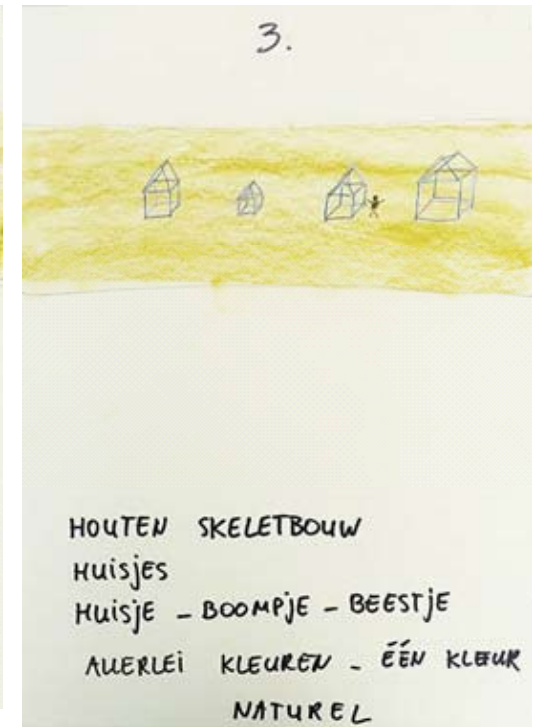 3.
HOUTEN SKELETBOUW
HUISJES
HUISJE - BOOMPJE - BEESTJE
ALLERLEI KLEUREN - ÉÉN KLEUR
NATUREL